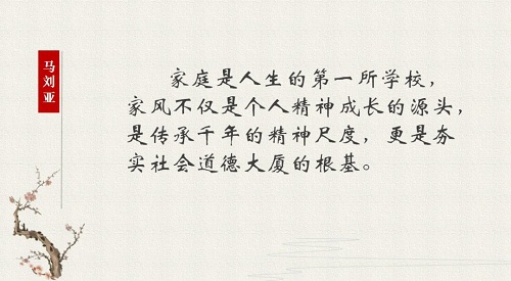 马刘亚
家庭是人生的第一所学校，
家风不仅是个人精神成长的源头，
是传承千年的精神尺度，更是夯
实社会道德大厦的根基。